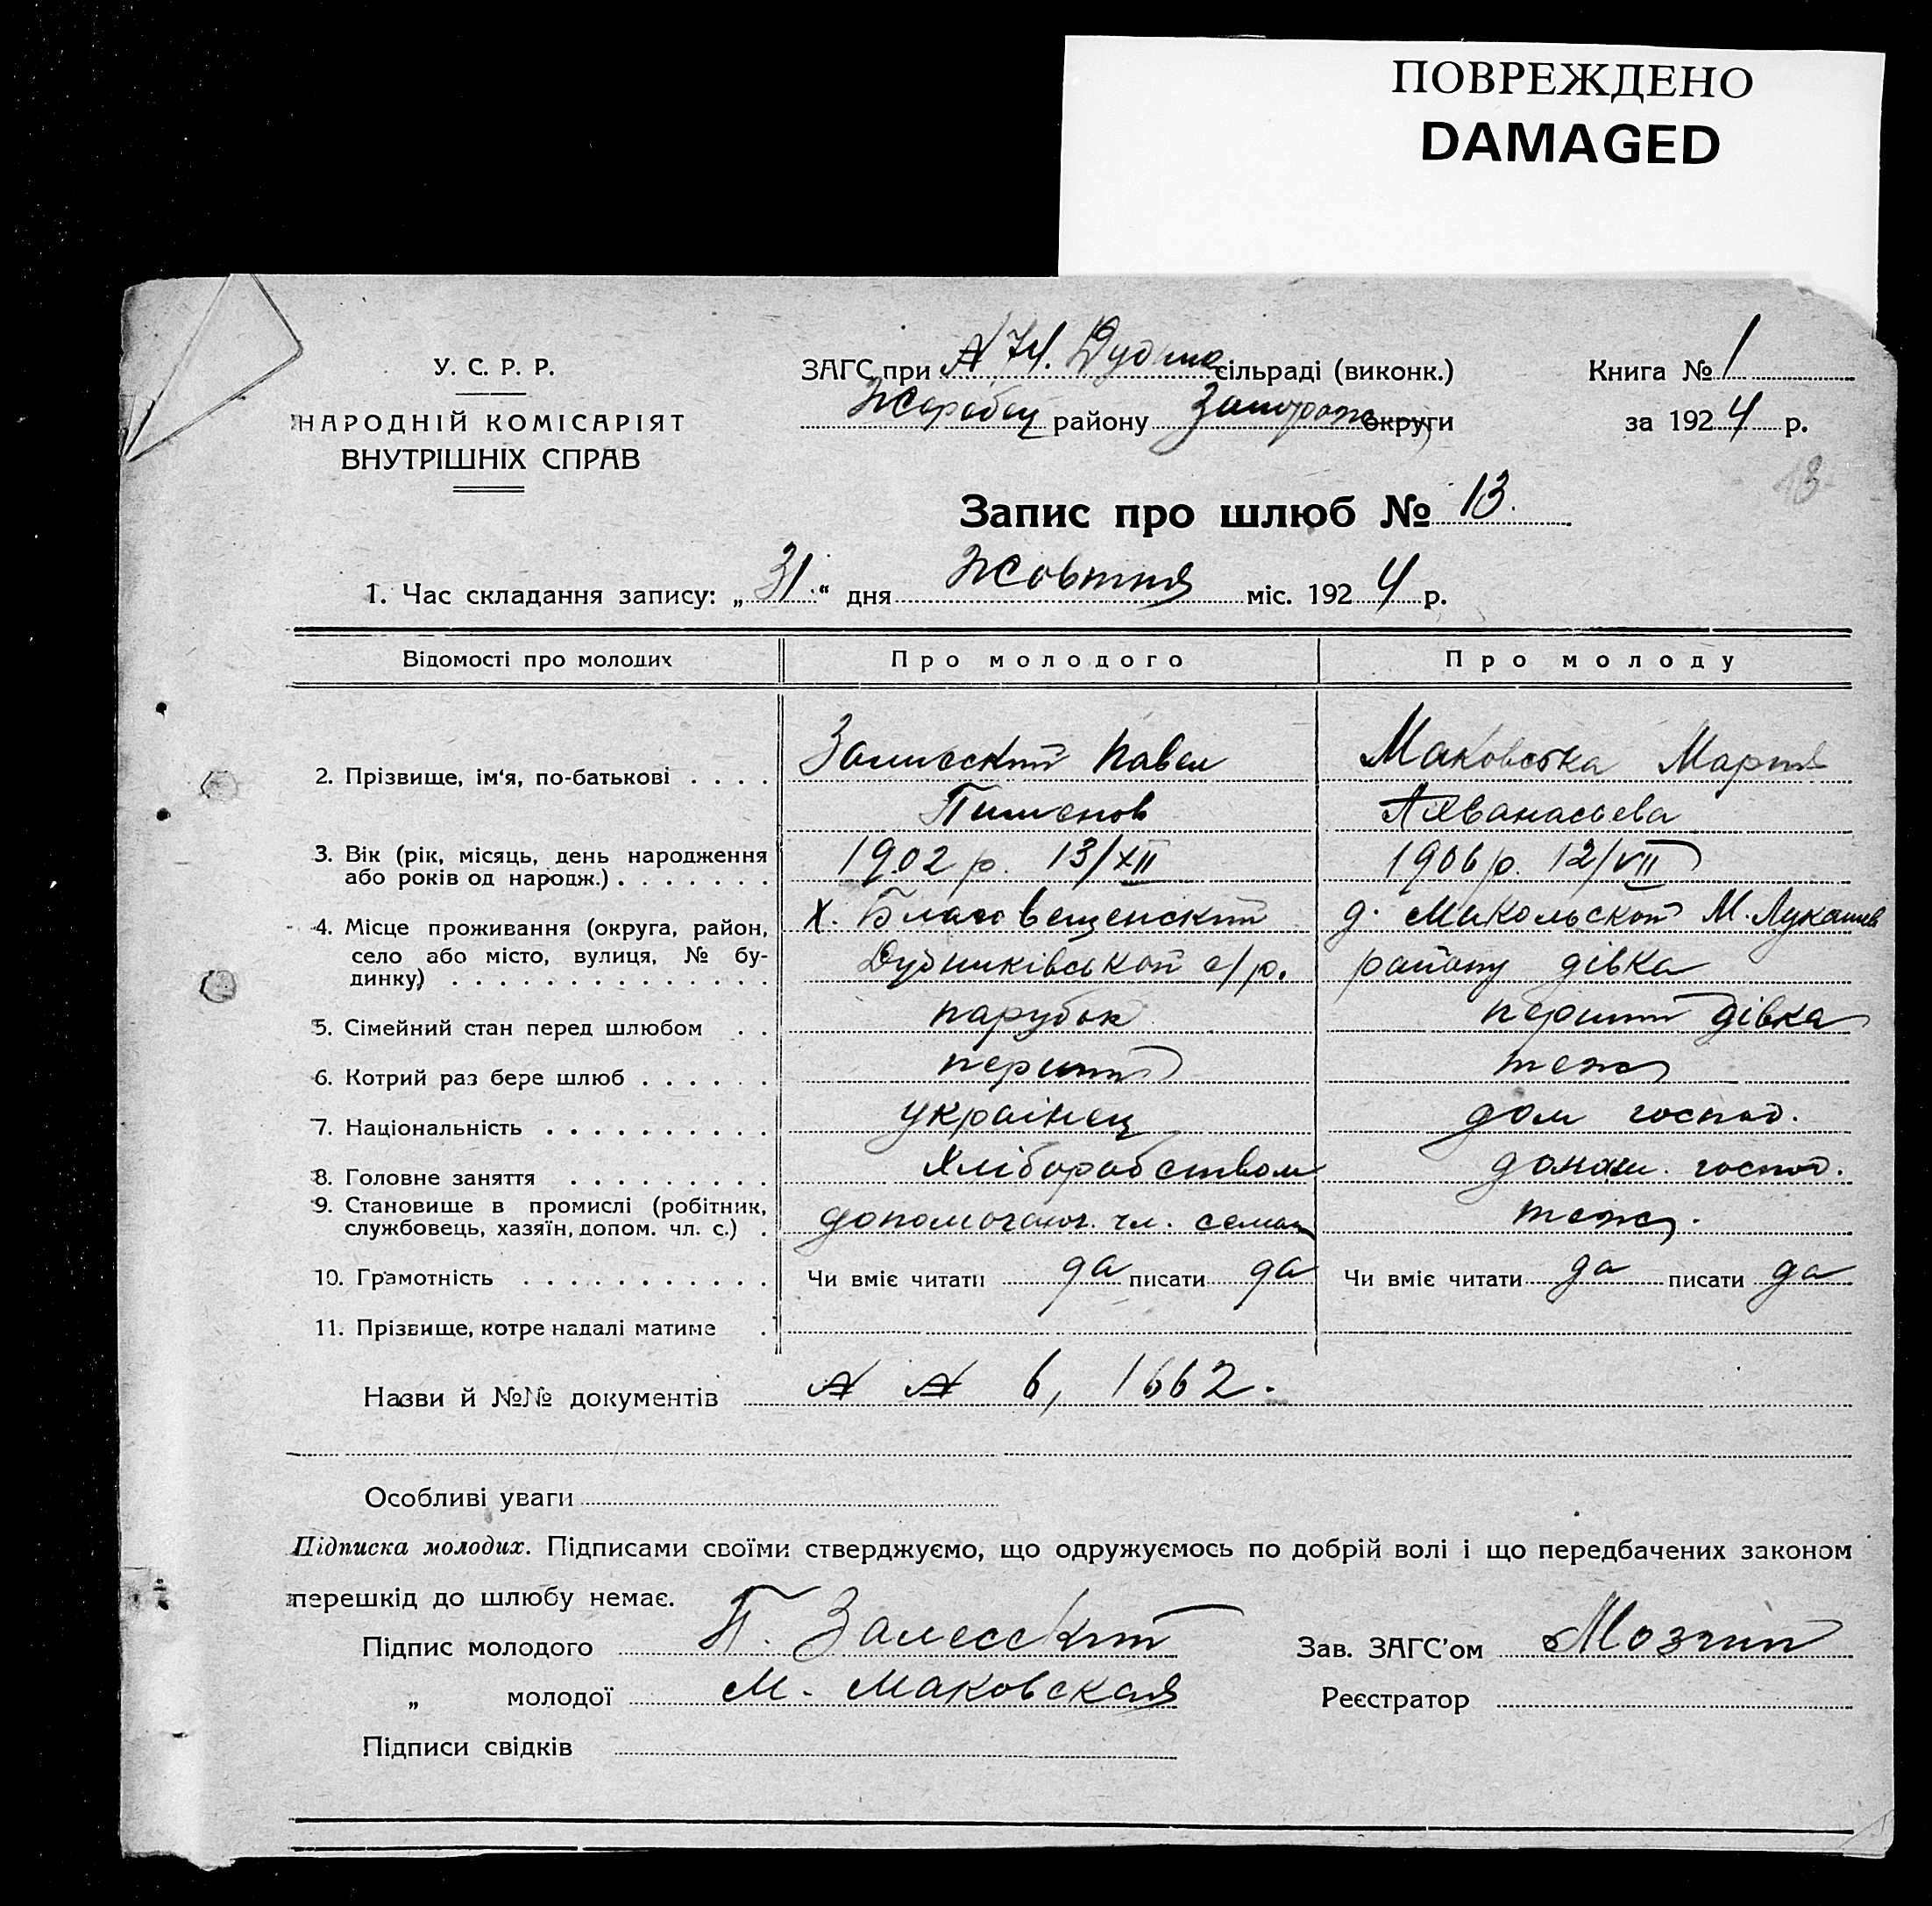 ПОВРЕЖДЕНО
DAMAGED
У. С. Р. Р.
НАРОДНІЙ КОМІСАРІЯТ
ВНУТРІШНІХ СПРАВ
ЗАГС при сільраді (виконк.)
Жеребец району Запорож округи
Книга № 1
за 1924 р.
13
Запис про шлюб № 13.
1. Час складання запису: „31“ дня Жовтня міс. 1924 р.
Відомості про молодих
Про молодого
Про молоду
2. Прізвище, ім'я, по-батькові . . . .
Павел
Пименов
Маковська Мария
Афванасьева
3. Вік (рік, місяць, день народження
або років од народж.) . . . . . . .
1902 р. 13/XII
1906 р. 12/VII
4. Місце проживання (округа, район,
село або місто, вулиця, № бу-
динку) . . . . . . . . . . . . . .
х. Благовещенский
с/р.
д. Микольской М. Лукашев
району дівка
5. Сімейний стан перед шлюбом . .
парубок
перший дівка
6. Котрий раз бере шлюб . . . . . .
перший
теж
7. Національність . . . . . . . . . .
українец
дом господ.
8. Головне заняття . . . . . . . . .
Хліборобством
домаш. господ.
9. Становище в промислі (робітник,
службовець, хазяїн, допом. чл. с.) .
допомогающ. чл. семьи
теж.
10. Грамотність . . . . . . . . . . .
Чи вміє читати да писати да
Чи вміє читати да писати да
11. Прізвище, котре надалі матиме .
Назви й №№ документів № № 6, 1662.
Особливі уваги
Підписка молодих. Підписами своїми стверджуємо, що одружуємось по добрій волі і що передбачених законом
перешкід до шлюбу немає.
Підпис молодого П. Залесский
Зав. ЗАГС'ом
„ молодої М. Маковская
Реєстратор
Підписи свідків